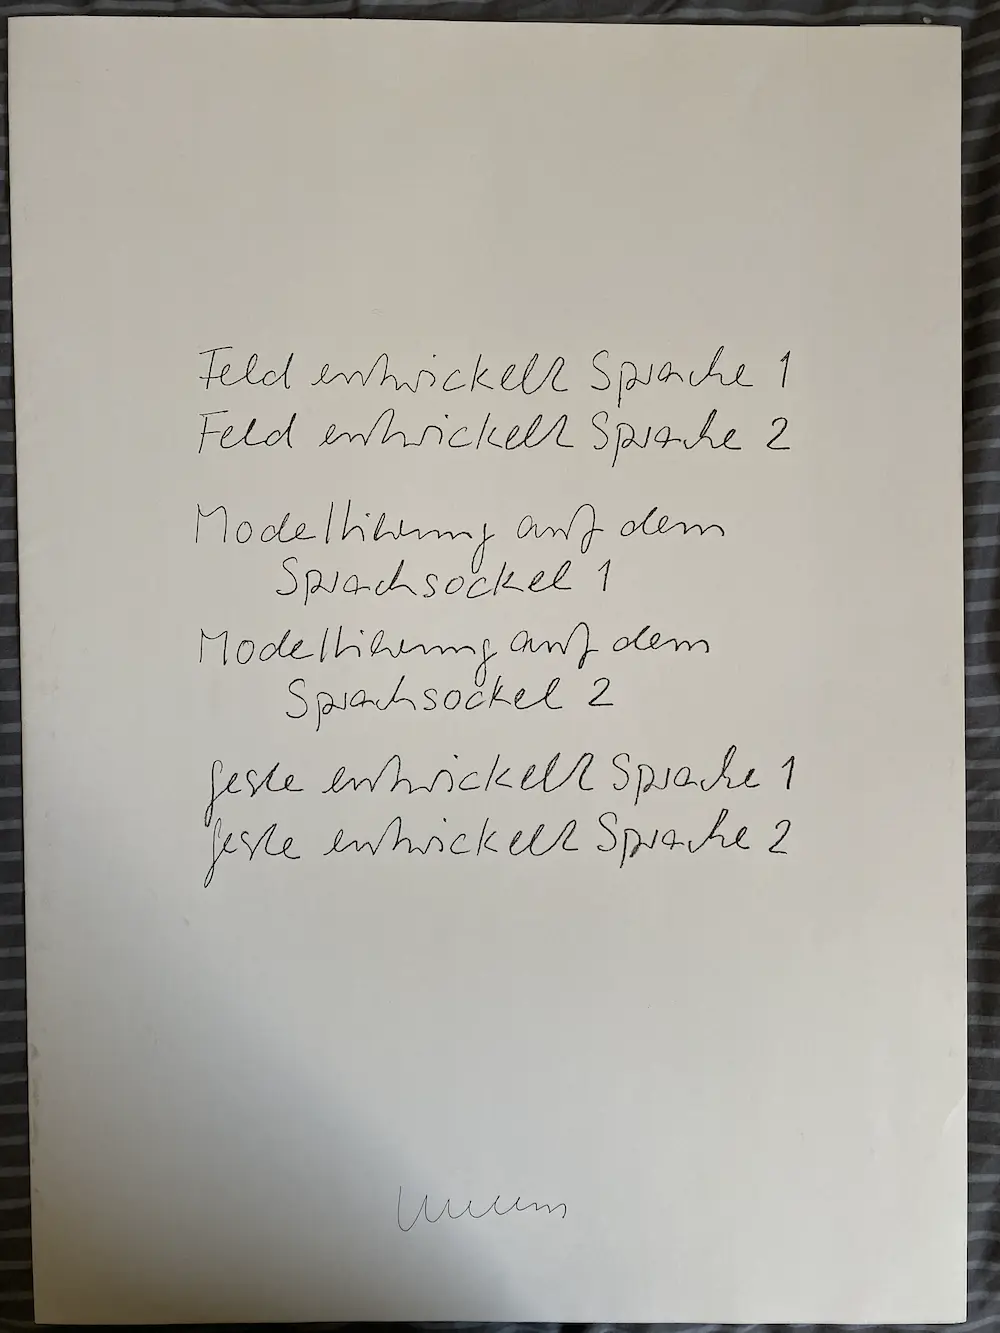 Feld entwickelt Sprache 1
Feld entwickelt Sprache 2
Modellierung auf dem
Sprachsockel 1
Modellierung auf dem
Sprachsockel 2
geste entwickelt Sprache 1
geste entwickelt Sprache 2